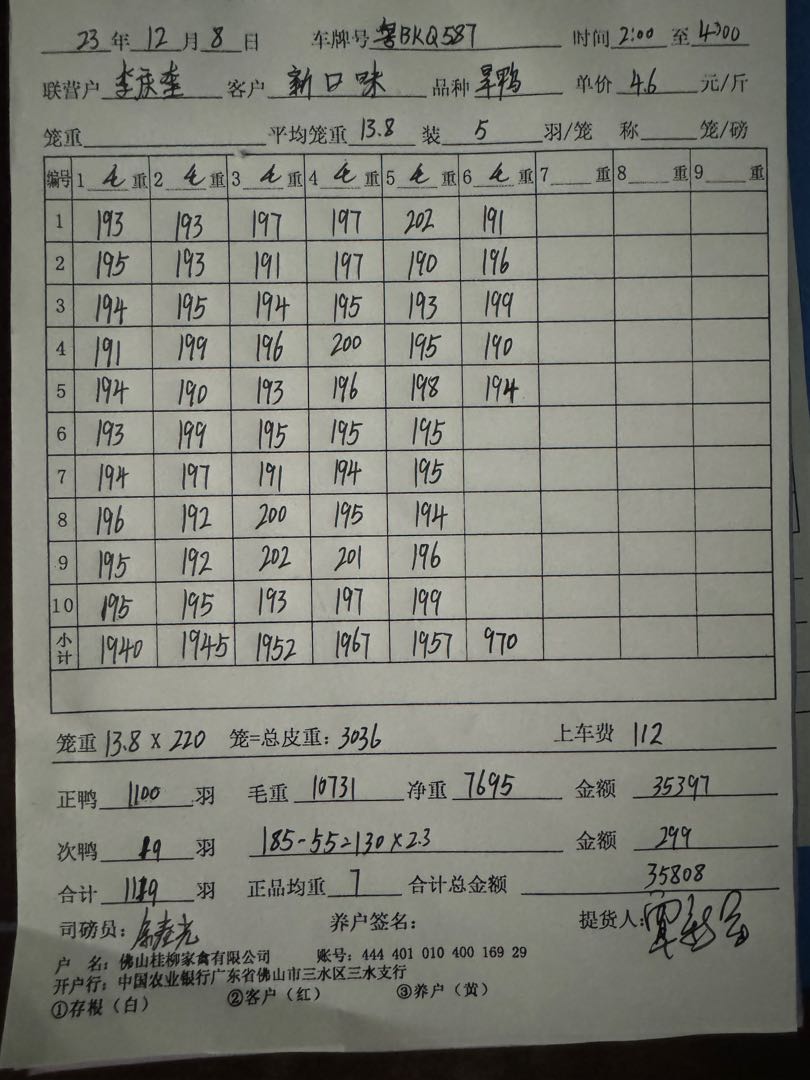 23年12月8日 车牌号 粤BKQ587 时间 2:00 至 4:00
联营户 李庆奎 客户 新口味 品种 旱鸭 单价 4.6 元/斤
笼重 平均笼重 13.8 装 5 羽/笼 称 笼/磅
编号 1 毛 重 2 毛 重 3 毛 重 4 毛 重 5 毛 重 6 毛 重 7 重 8 重 9 重
1 193 193 197 197 202 191
2 195 193 191 197 190 196
3 194 195 194 195 193 199
4 191 199 196 200 195 190
5 194 190 193 196 198 194
6 193 199 195 195 195
7 194 197 191 194 195
8 196 192 200 195 194
9 195 192 202 201 196
10 195 195 193 197 199
小计 1940 1945 1952 1967 1957 970
笼重 13.8 X 220 笼=总皮重: 3036 上车费 112
正鸭 1100 羽 毛重 10731 净重 7695 金额 35397
次鸭 19 羽 185-55=130×2.3 金额 299
合计 1119 羽 正品均重 7 合计总金额 35808
司磅员: 养户签名: 提货人:
户 名: 佛山桂柳家禽有限公司 账号: 444 401 010 400 169 29
开户行: 中国农业银行广东省佛山市三水区三水支行
①存根（白） ②客户（红） ③养户（黄）